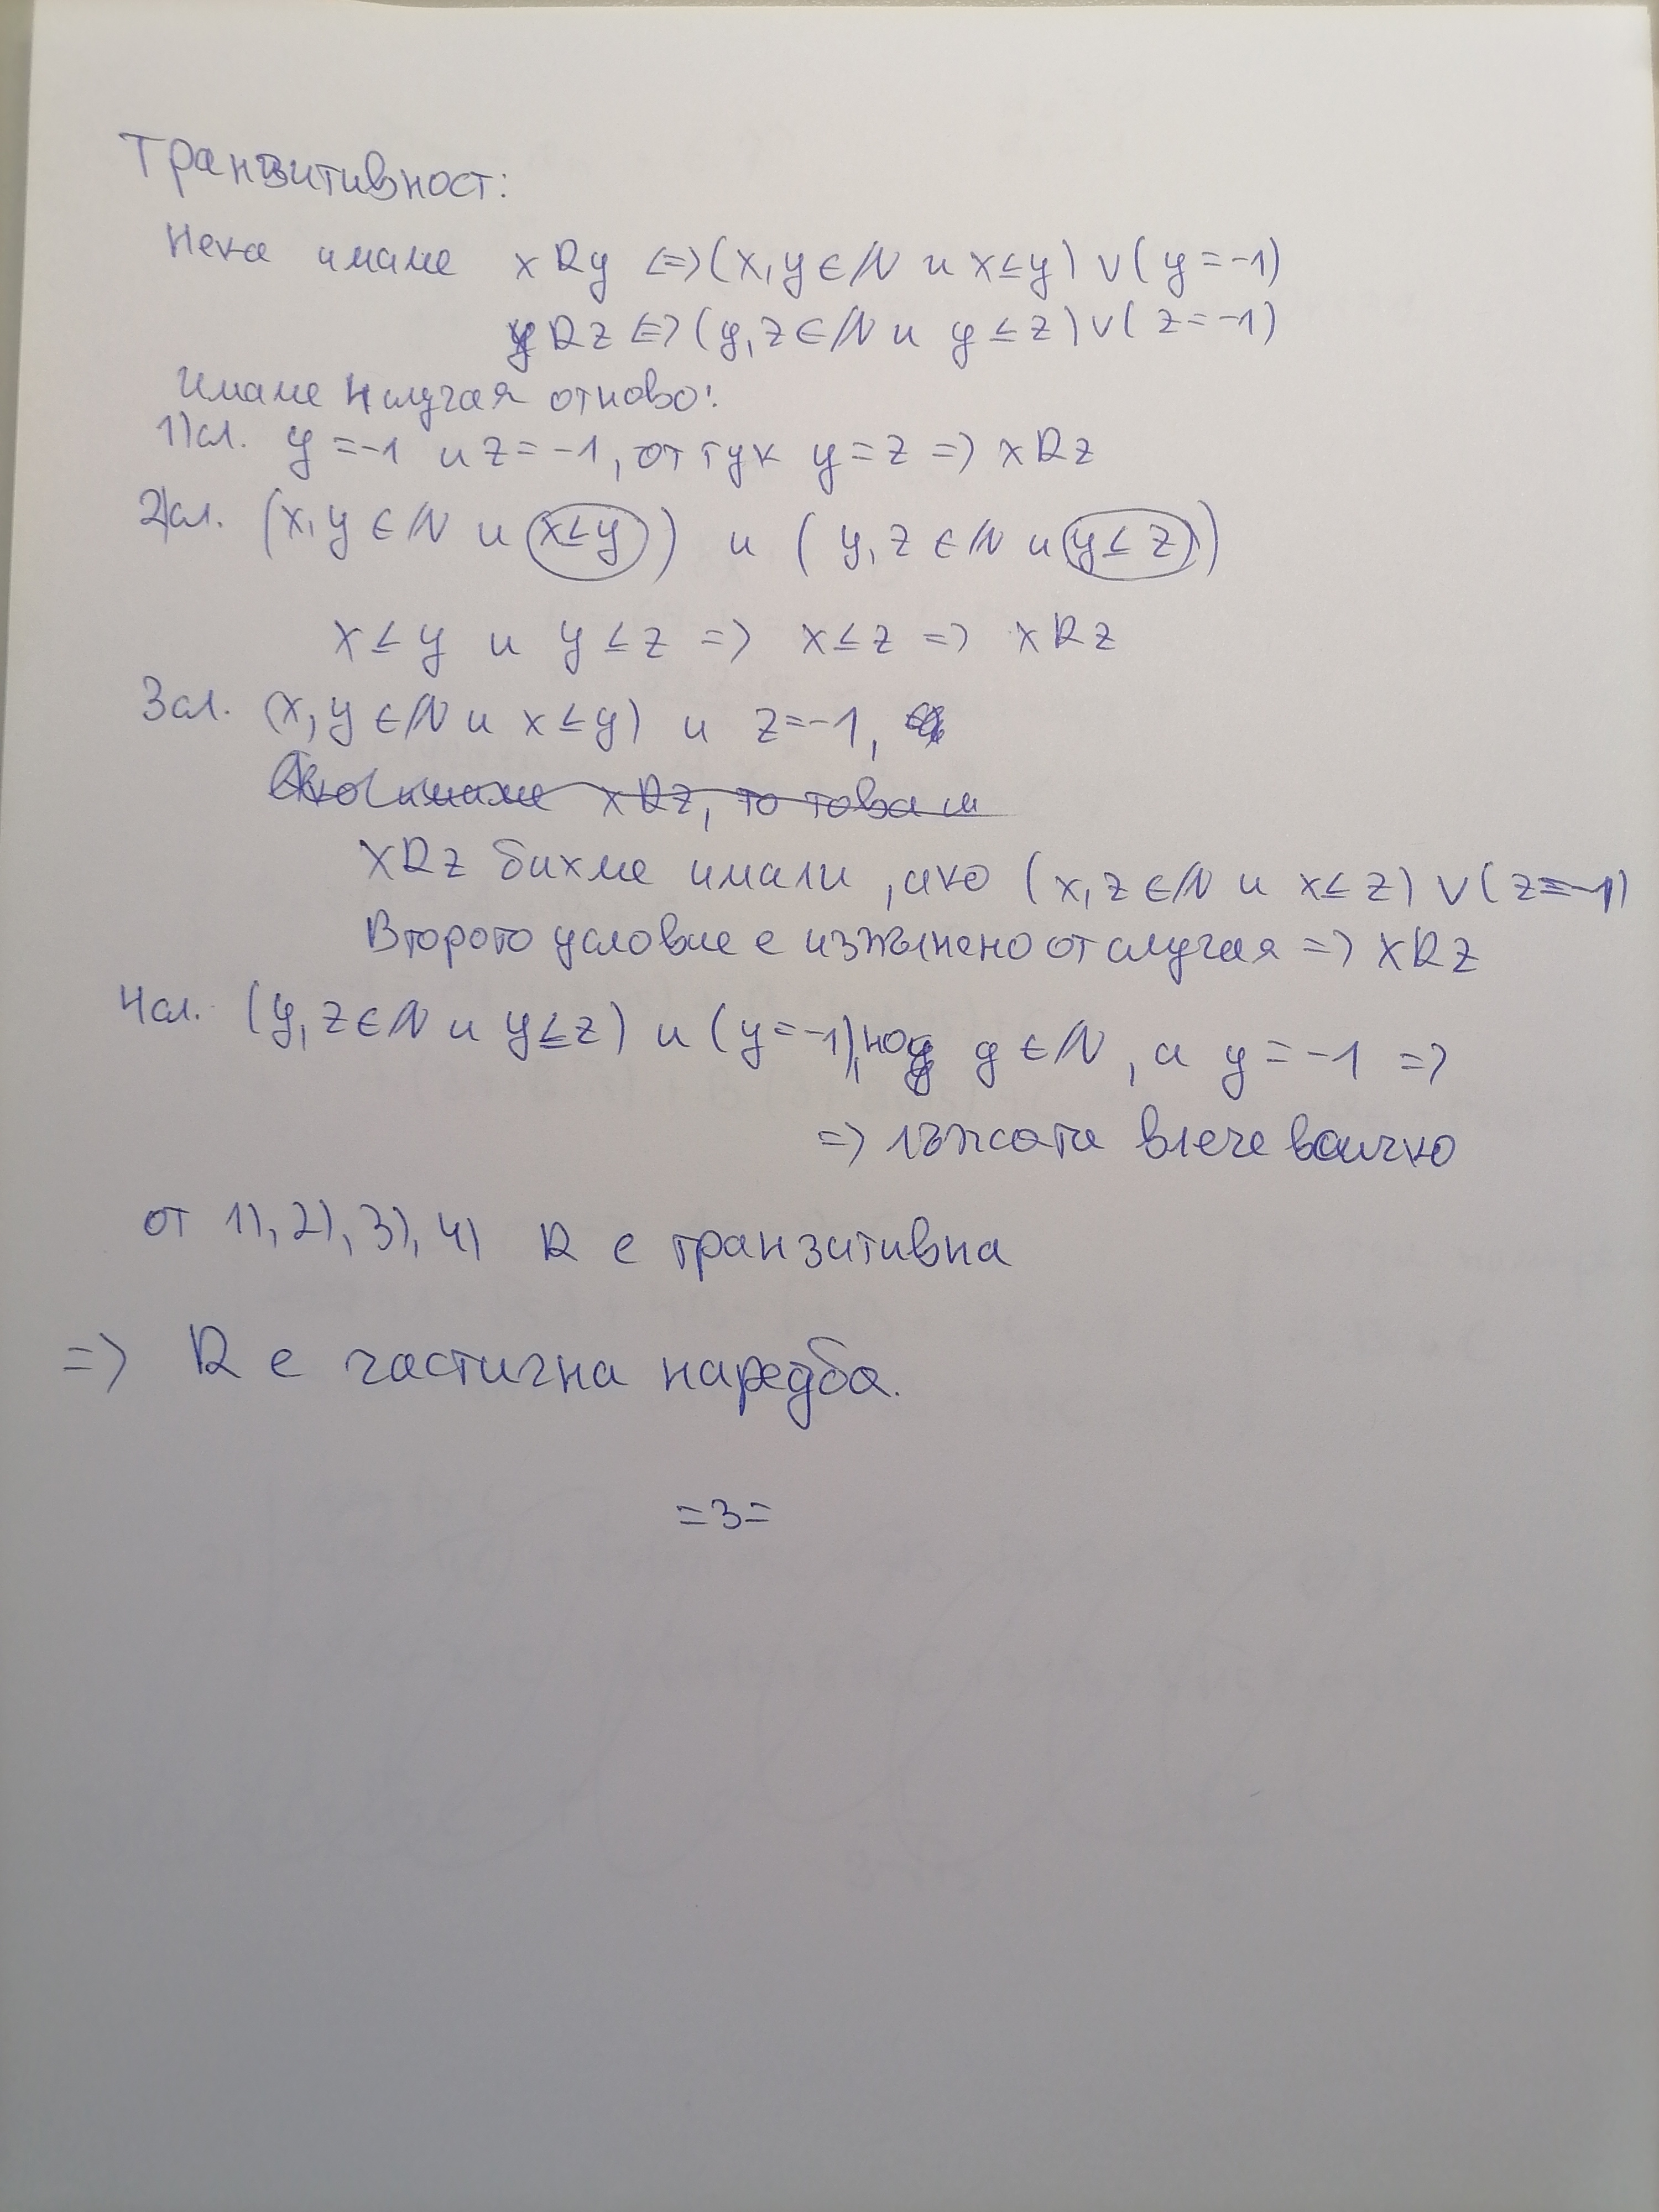 Транзитивност:
Нека имаме xRy <=> (x, y ∈ ℕ и x ≤ y) ∨ (y = -1)
yRz <=> (y, z ∈ ℕ и y ≤ z) ∨ (z = -1)
Имаме 4 случая отново:
1)сл. y = -1 и z = -1, от тук y = z => xRz
2)сл. (x, y ∈ ℕ и x ≤ y) и (y, z ∈ ℕ и y ≤ z)
x ≤ y и y ≤ z => x ≤ z => xRz
3сл. (x, y ∈ ℕ и x ≤ y) и z = -1,
Ако имаме xRz, то това
xRz бихме имали, ако (x, z ∈ ℕ и x ≤ z) ∨ (z = -1)
Второто условие е изпълнено от случая => xRz
4сл. (y, z ∈ ℕ и y ≤ z) и (y = -1), но y ∈ ℕ, а y = -1 =>
=> лъжата влече всичко
от 1), 2), 3), 4) R е транзитивна
=> R е частична наредба.
=3=